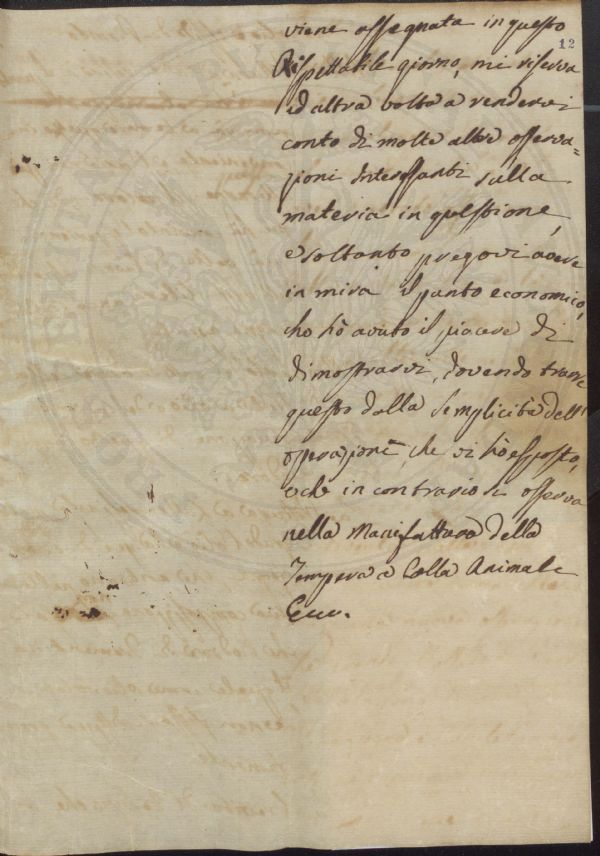 viene assegnata in questo
12
Rispettabile giorno, mi riserva
ad altra volta a rendervi
conto di molte altre osserva=
zioni interessanti sulla
materia in quesstione,
e soltanto pregovi avere
in mira il punto economico,
che hò avuto il piacere di
dimostrarvi, dovendo trarre
questo dalla semplicità dell'
operazione, che vi hò esposto,
e che in contrario si osserva
nella Manifattura della
Tempera a Colla Animale